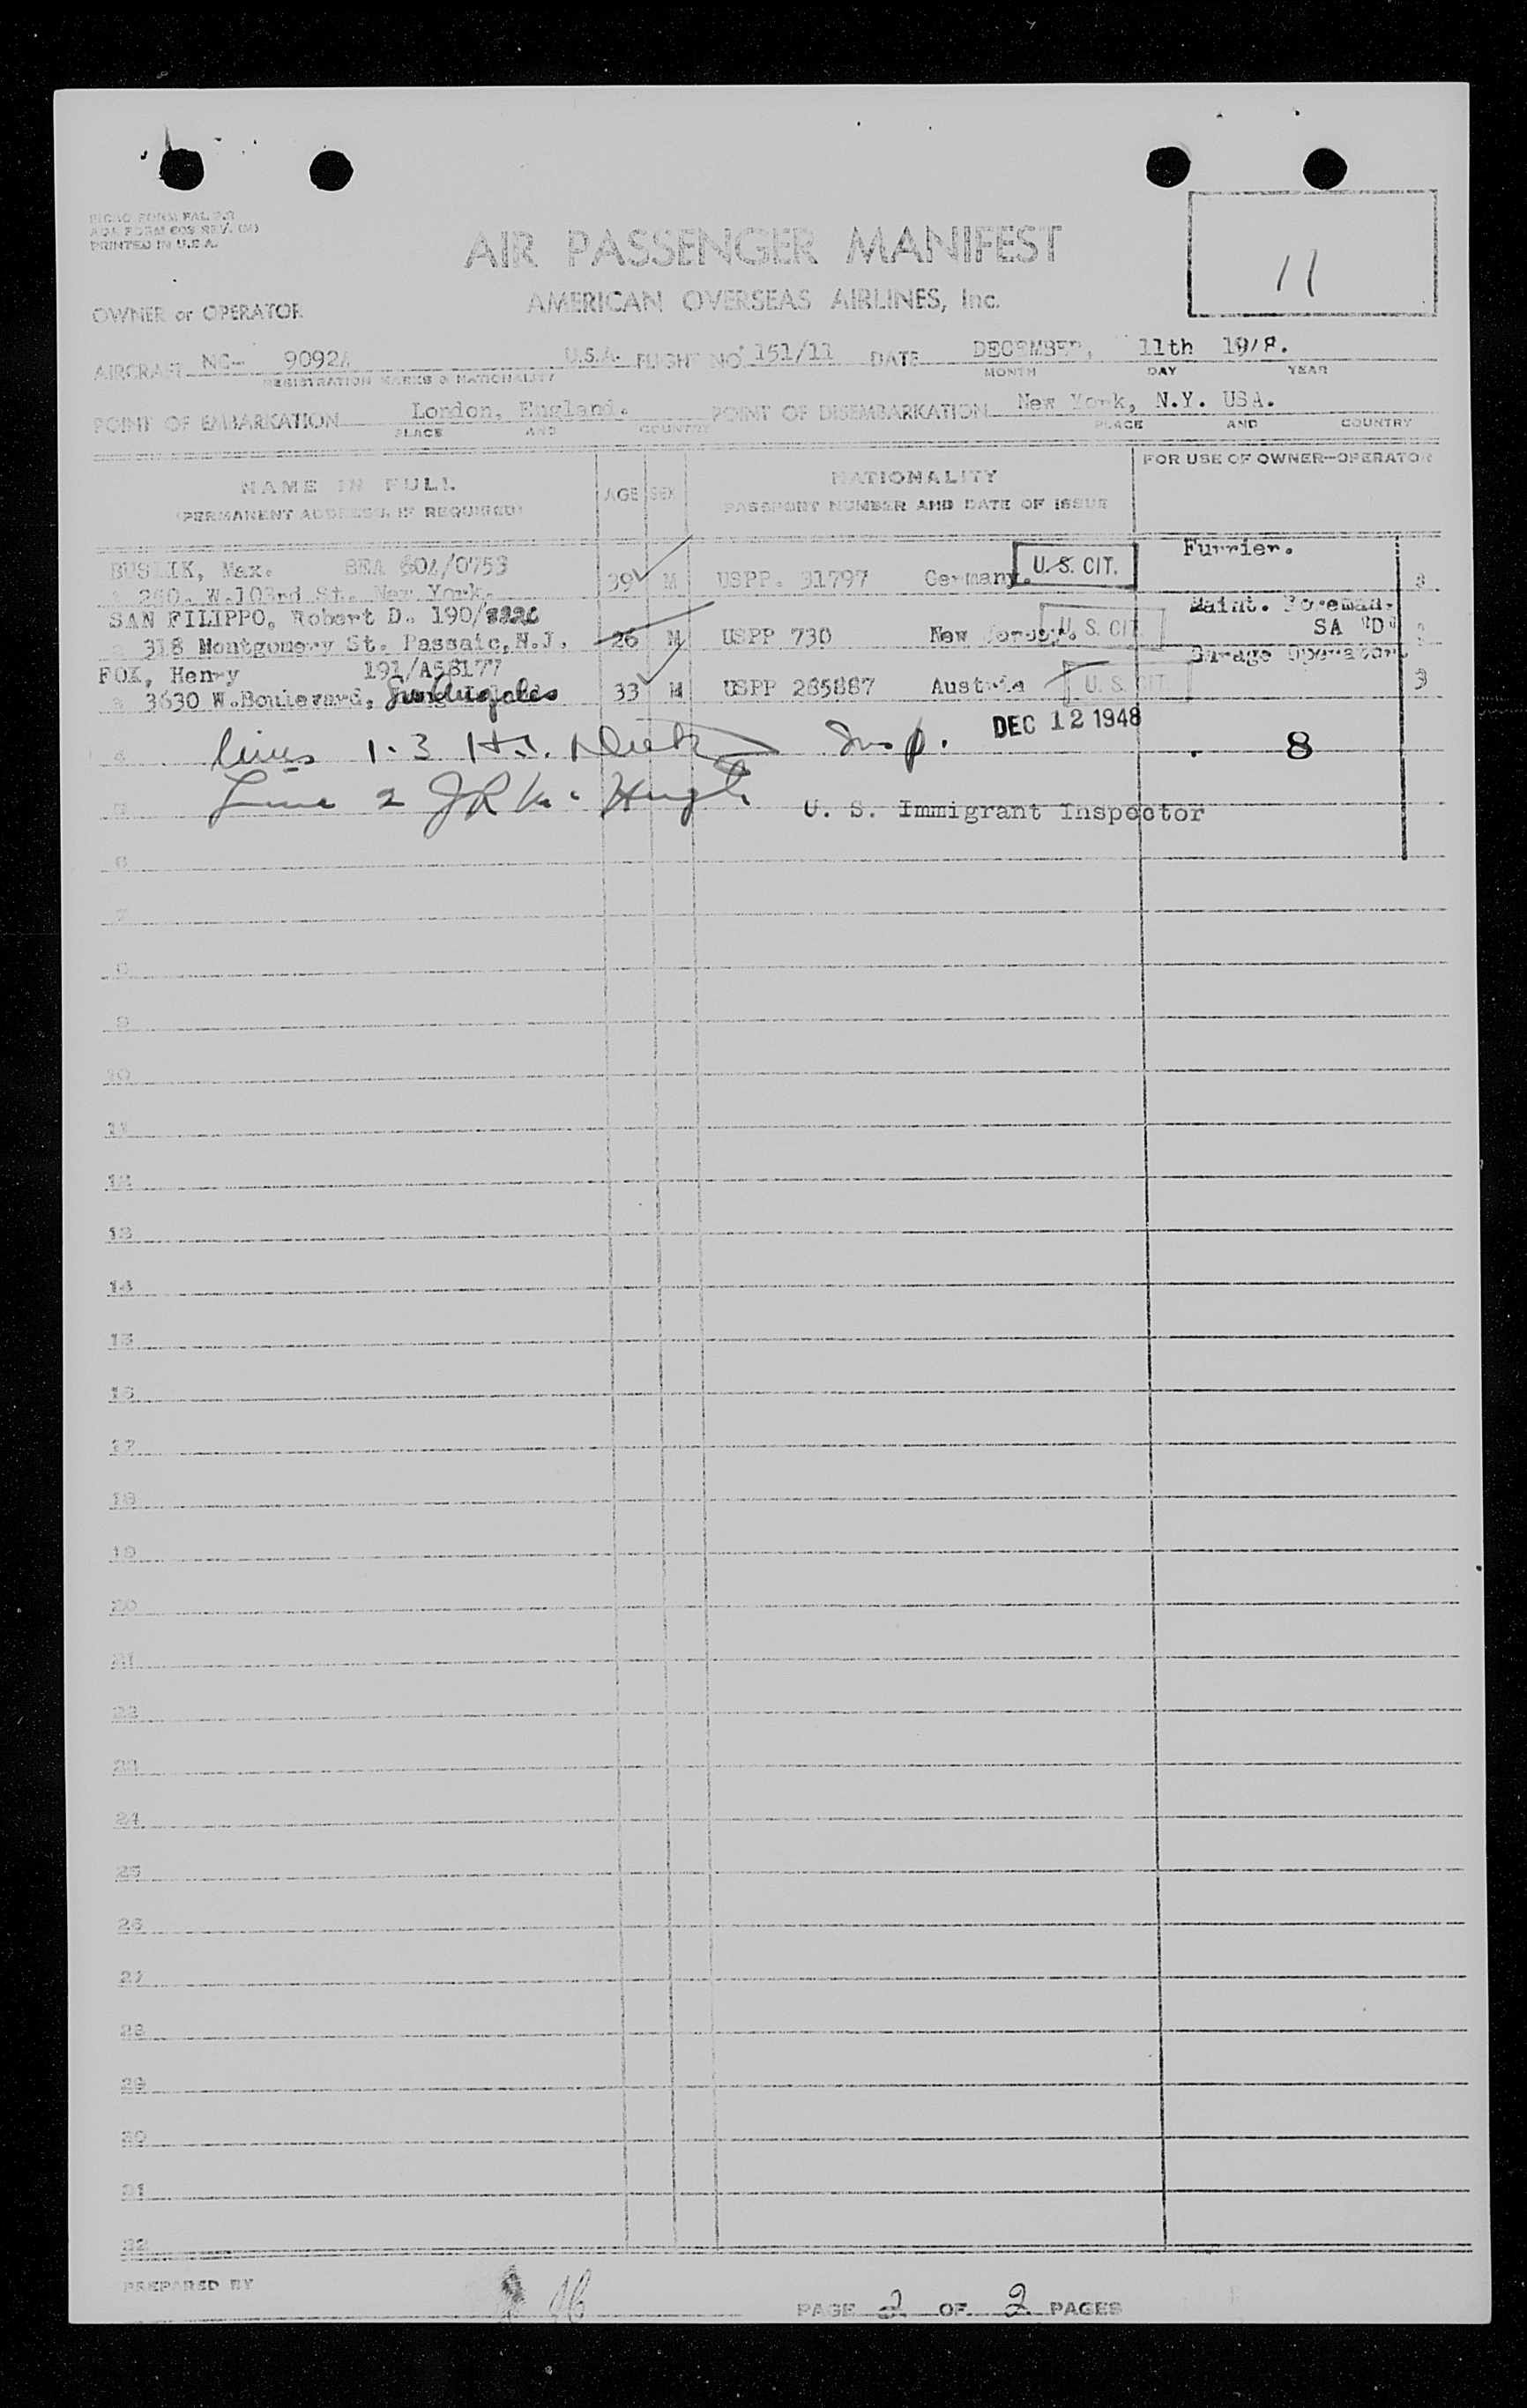 PRINTED IN U.S.A.
11
AIR PASSENGER MANIFEST
AMERICAN OVERSEAS AIRLINES, Inc.
OWNER or OPERATOR
AIRCRAFT NC- 9092 U.S.A. FLIGHT NO. 151/11 DATE DECEMBER, 11th 1948.
REGISTRATION MARKS & NATIONALITY MONTH DAY YEAR
POINT OF EMBARKATION London, England. POINT OF DISEMBARKATION New York, N.Y. USA.
PLACE AND COUNTRY PLACE AND COUNTRY
NAME IN FULL AGE SEX NATIONALITY FOR USE OF OWNER-OPERATOR
(PERMANENT ADDRESS, IF REQUIRED) PASSPORT NUMBER AND DATE OF ISSUE
BUSLIK, Max. BEA Furrier.
W.103rd St. New York. 39 M USPP. 31797 Germany. U.S. CIT.
SAN FILIPPO, Robert D. 190/ Maint. Foreman.
318 Montgomery St. Passaic, N.J. 26 M USPP 730 New Jersey. U.S. CIT. SA "D"
FOX, Henry 191/A58177 Garage Operator.
3630 W.Boulevard, 33 M USPP 285887 Austria U.S. CIT. 3
lines 1-3 Insp. DEC 12 1948 8
Line 2 U. S. Immigrant Inspector
6
7
8
9
10
11
12
13
14
15
16
17
18
19
20
21
22
23
24
25
26
27
28
29
30
31
32
PREPARED BY
PAGE 2 OF 2 PAGES